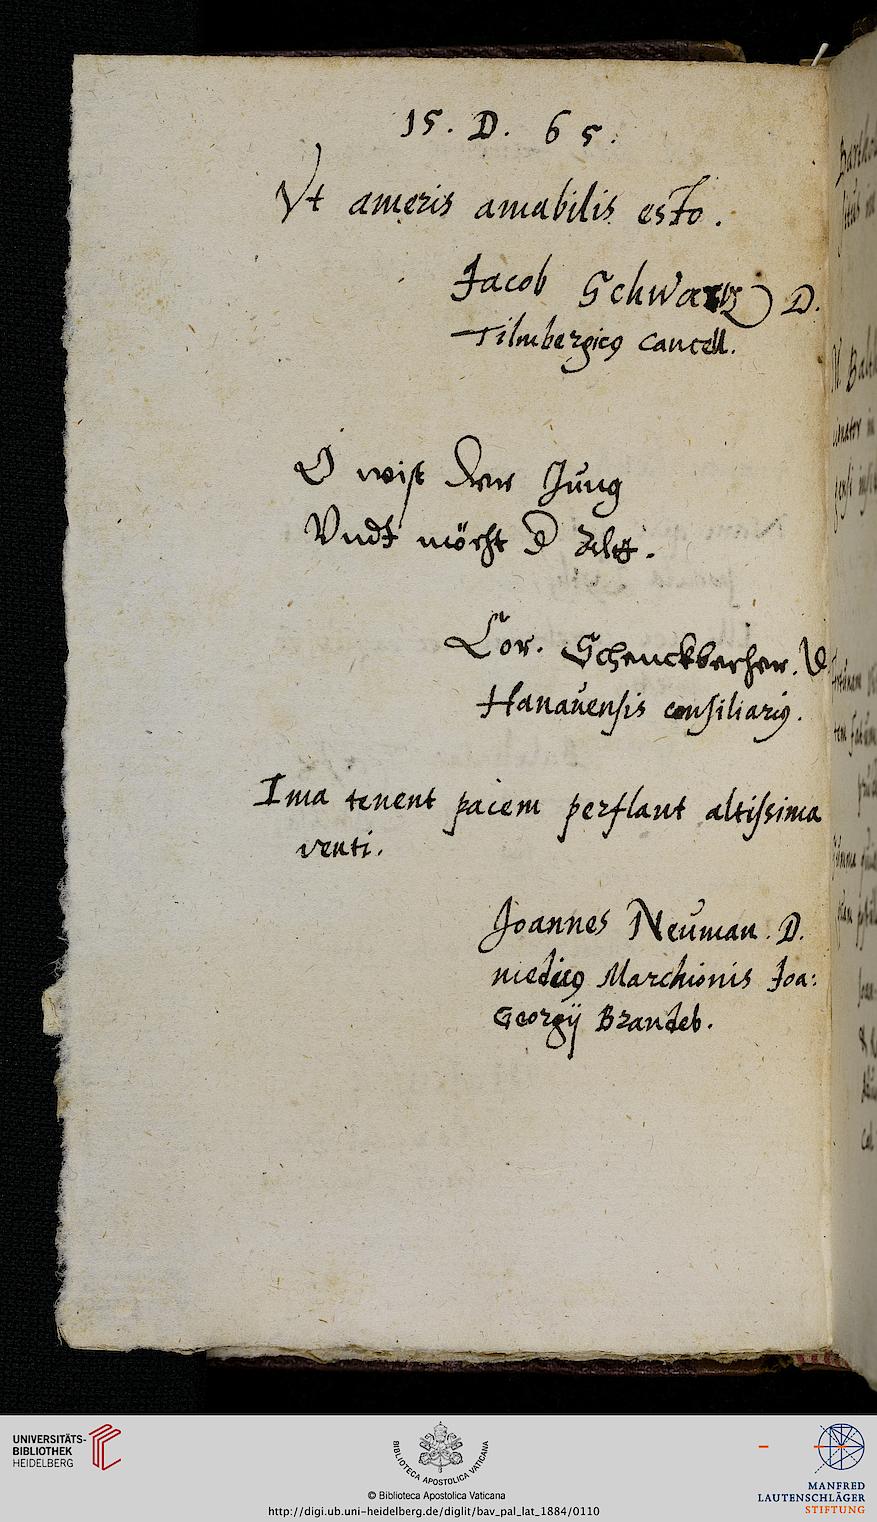 15. D. 65.
Vt ameris amabilis esto.
Jacob Schwartz D.
Cancell.
O wist der Jung
Vndt möcht d Alt.
Hanauensis consiliariꝰ.
Ima tenent pacem perflant altissima
venti.
Joannes Neuman. D.
medicꝰ Marchionis Joa:
Georgij Brandeb.
UNIVERSITÄTS-
BIBLIOTHEK
HEIDELBERG
BIBLIOTECA APOSTOLICA VATICANA
© Biblioteca Apostolica Vaticana
http://digi.ub.uni-heidelberg.de/diglit/bav_pal_lat_1884/0110
MANFRED
LAUTENSCHLÄGER
STIFTUNG